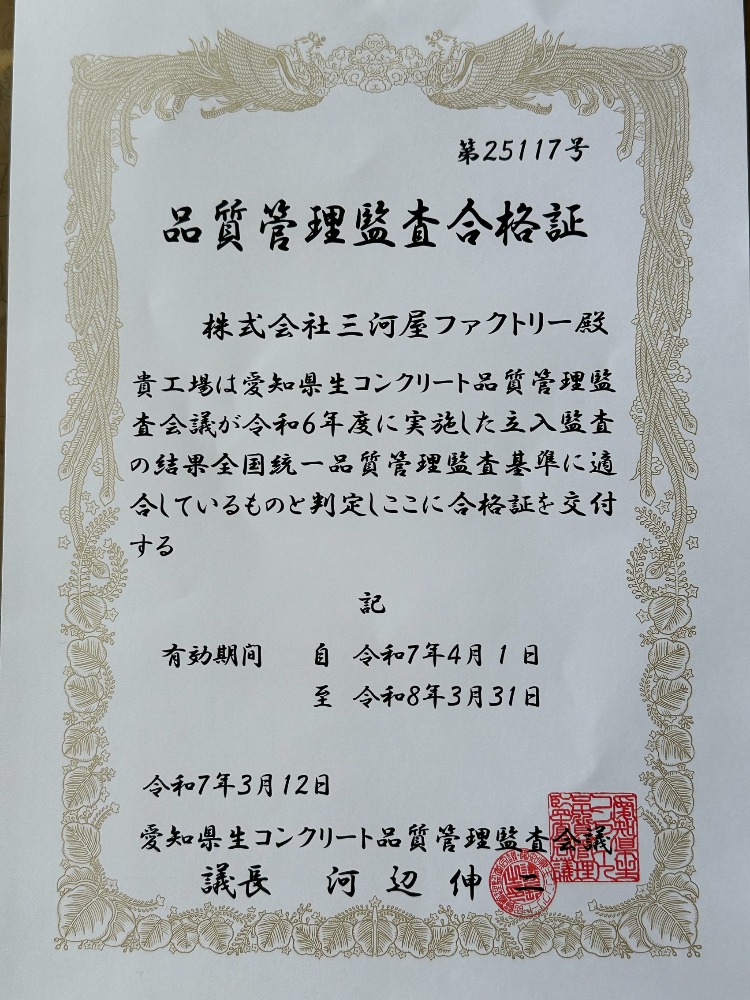 第25117号
品質管理監査合格証
株式会社三河屋ファクトリー殿
貴工場は愛知県生コンクリート品質管理監
査会議が令和6年度に実施した立入監査
の結果全国統一品質管理監査基準に適
合しているものと判定しここに合格証を交付
する
記
有効期間 自 令和7年4月1日
至 令和8年3月31日
令和7年3月12日
愛知県生コンクリート品質管理監査会議
議長 河辺伸二